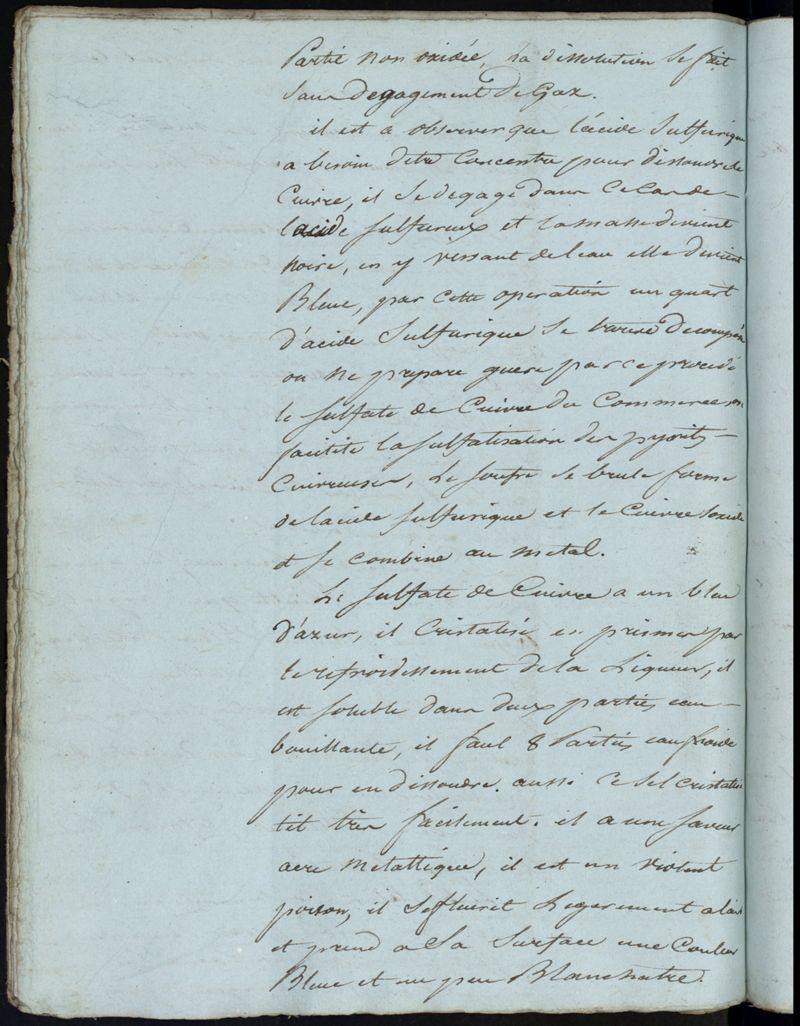 Partie non oxidée, La dissolution se fait
sans degagement de Gaz.
il est a observer que l'acide Sulfurique
a besoin detre Concentré pour dissoudre le
Cuivre, il se degage dans ce Cas de
lacide sulfureux et la masse devient
noire, en y versant de leau elle devient
Bleue, par cette operation un quart
d'acide Sulfurique se trouve decomposé
on ne prepare guere par ce procedé
le sulfate de Cuivre du Commerce on
facilite la sulfatisation des pyrites
Cuivreuses, Le soufre se brule forme
de lacide sulfurique et le Cuivre soxide
et se combine au metal.
Le sulfate de Cuivre a un bleu
d'azur, il Cristalise en prismes par
le refroidissement de la Liqueur, il
est soluble dans deux parties eau
bouillante, il faut 8 Parties eau froide
pour en dissoudre. aussi Ce sel cristalise
til très facilement. il a une saveur
acre Metallique, il est un violent
poison, il sefleurit Legerement a lair
et prend a Sa Surface une Couleur
Bleue et un peu Blanchatre.